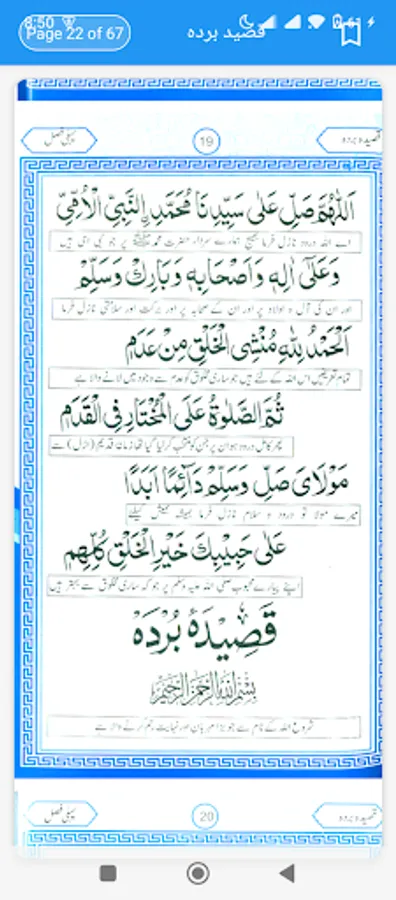 8:50
Page 22 of 67
قصيد برده
قصیدہ بردہ
19
پہلی فصل
اَللّٰهُمَّ صَلِّ عَلٰى سَيِّدِنَا مُحَمَّدِ ࣙالنَّبِيِّ الْاُمِّيِّ
اے اللہ درود نازل فرما ہمارے سردار حضرت محمد ﷺ پر جو نبی امی ہیں
وَعَلٰٓى اٰلِهٖ وَاَصْحَابِهٖ وَبَارِكْ وَسَلِّمْ
اور ان کی آل و اولاد پر اور ان کے صحابہ پر اور برکت اور سلامتی نازل فرما
اَلْحَمْدُ لِلّٰهِ مُنْشِى الْخَلْقِ مِنْ عَدَمٍ
تمام تعریفیں اس اللہ کے لئے ہیں جو ساری مخلوق کو عدم سے وجود میں لانے والا ہے
ثُمَّ الصَّلٰوةُ عَلَى الْمُخْتَارِ فِى الْقِدَمِ
پھر کامل درود ہو ان پر جن کو منتخب کر لیا گیا تھا زمانۂ قدیم (ازل) سے
مَوْلَاىَ صَلِّ وَسَلِّمْ دَآئِمًا اَبَدًا
میرے مولا تو درود و سلام نازل فرما ہمیشہ ہمیش کیلئے
عَلٰى حَبِيْبِكَ خَيْرِ الْخَلْقِ كُلِّهِمِ
اپنے پیارے محبوب صلی اللہ علیہ وسلم پر جو کہ ساری مخلوق سے بہتر ہیں
قَصِيْدَهٔ بُرْدَه
بِسْمِ اللّٰهِ الرَّحْمٰنِ الرَّحِيْمِ
شروع اللہ کے نام سے جو بڑا مہربان اور نہایت رحم کرنے والا ہے
قصیدہ بردہ
20
پہلی فصل